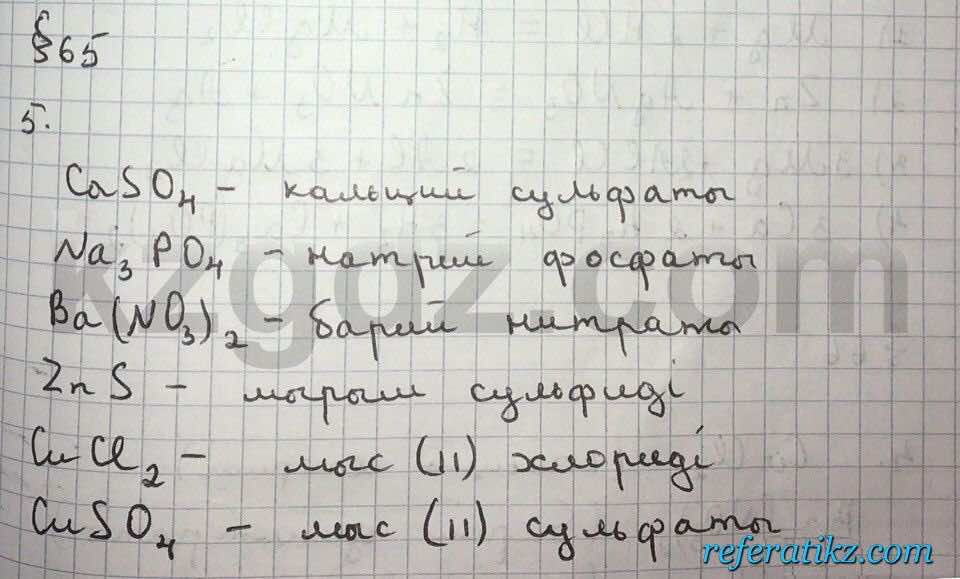 §65
5.
CaSO₄ - кальций сульфаты
Na₃PO₄ - натрий фосфаты
Ba(NO₃)₂ - барий нитраты
ZnS - мырыш сульфиді
CuCl₂ - мыс (II) хлориді
CuSO₄ - мыс (II) сульфаты
kzgdz.com
referatikz.com